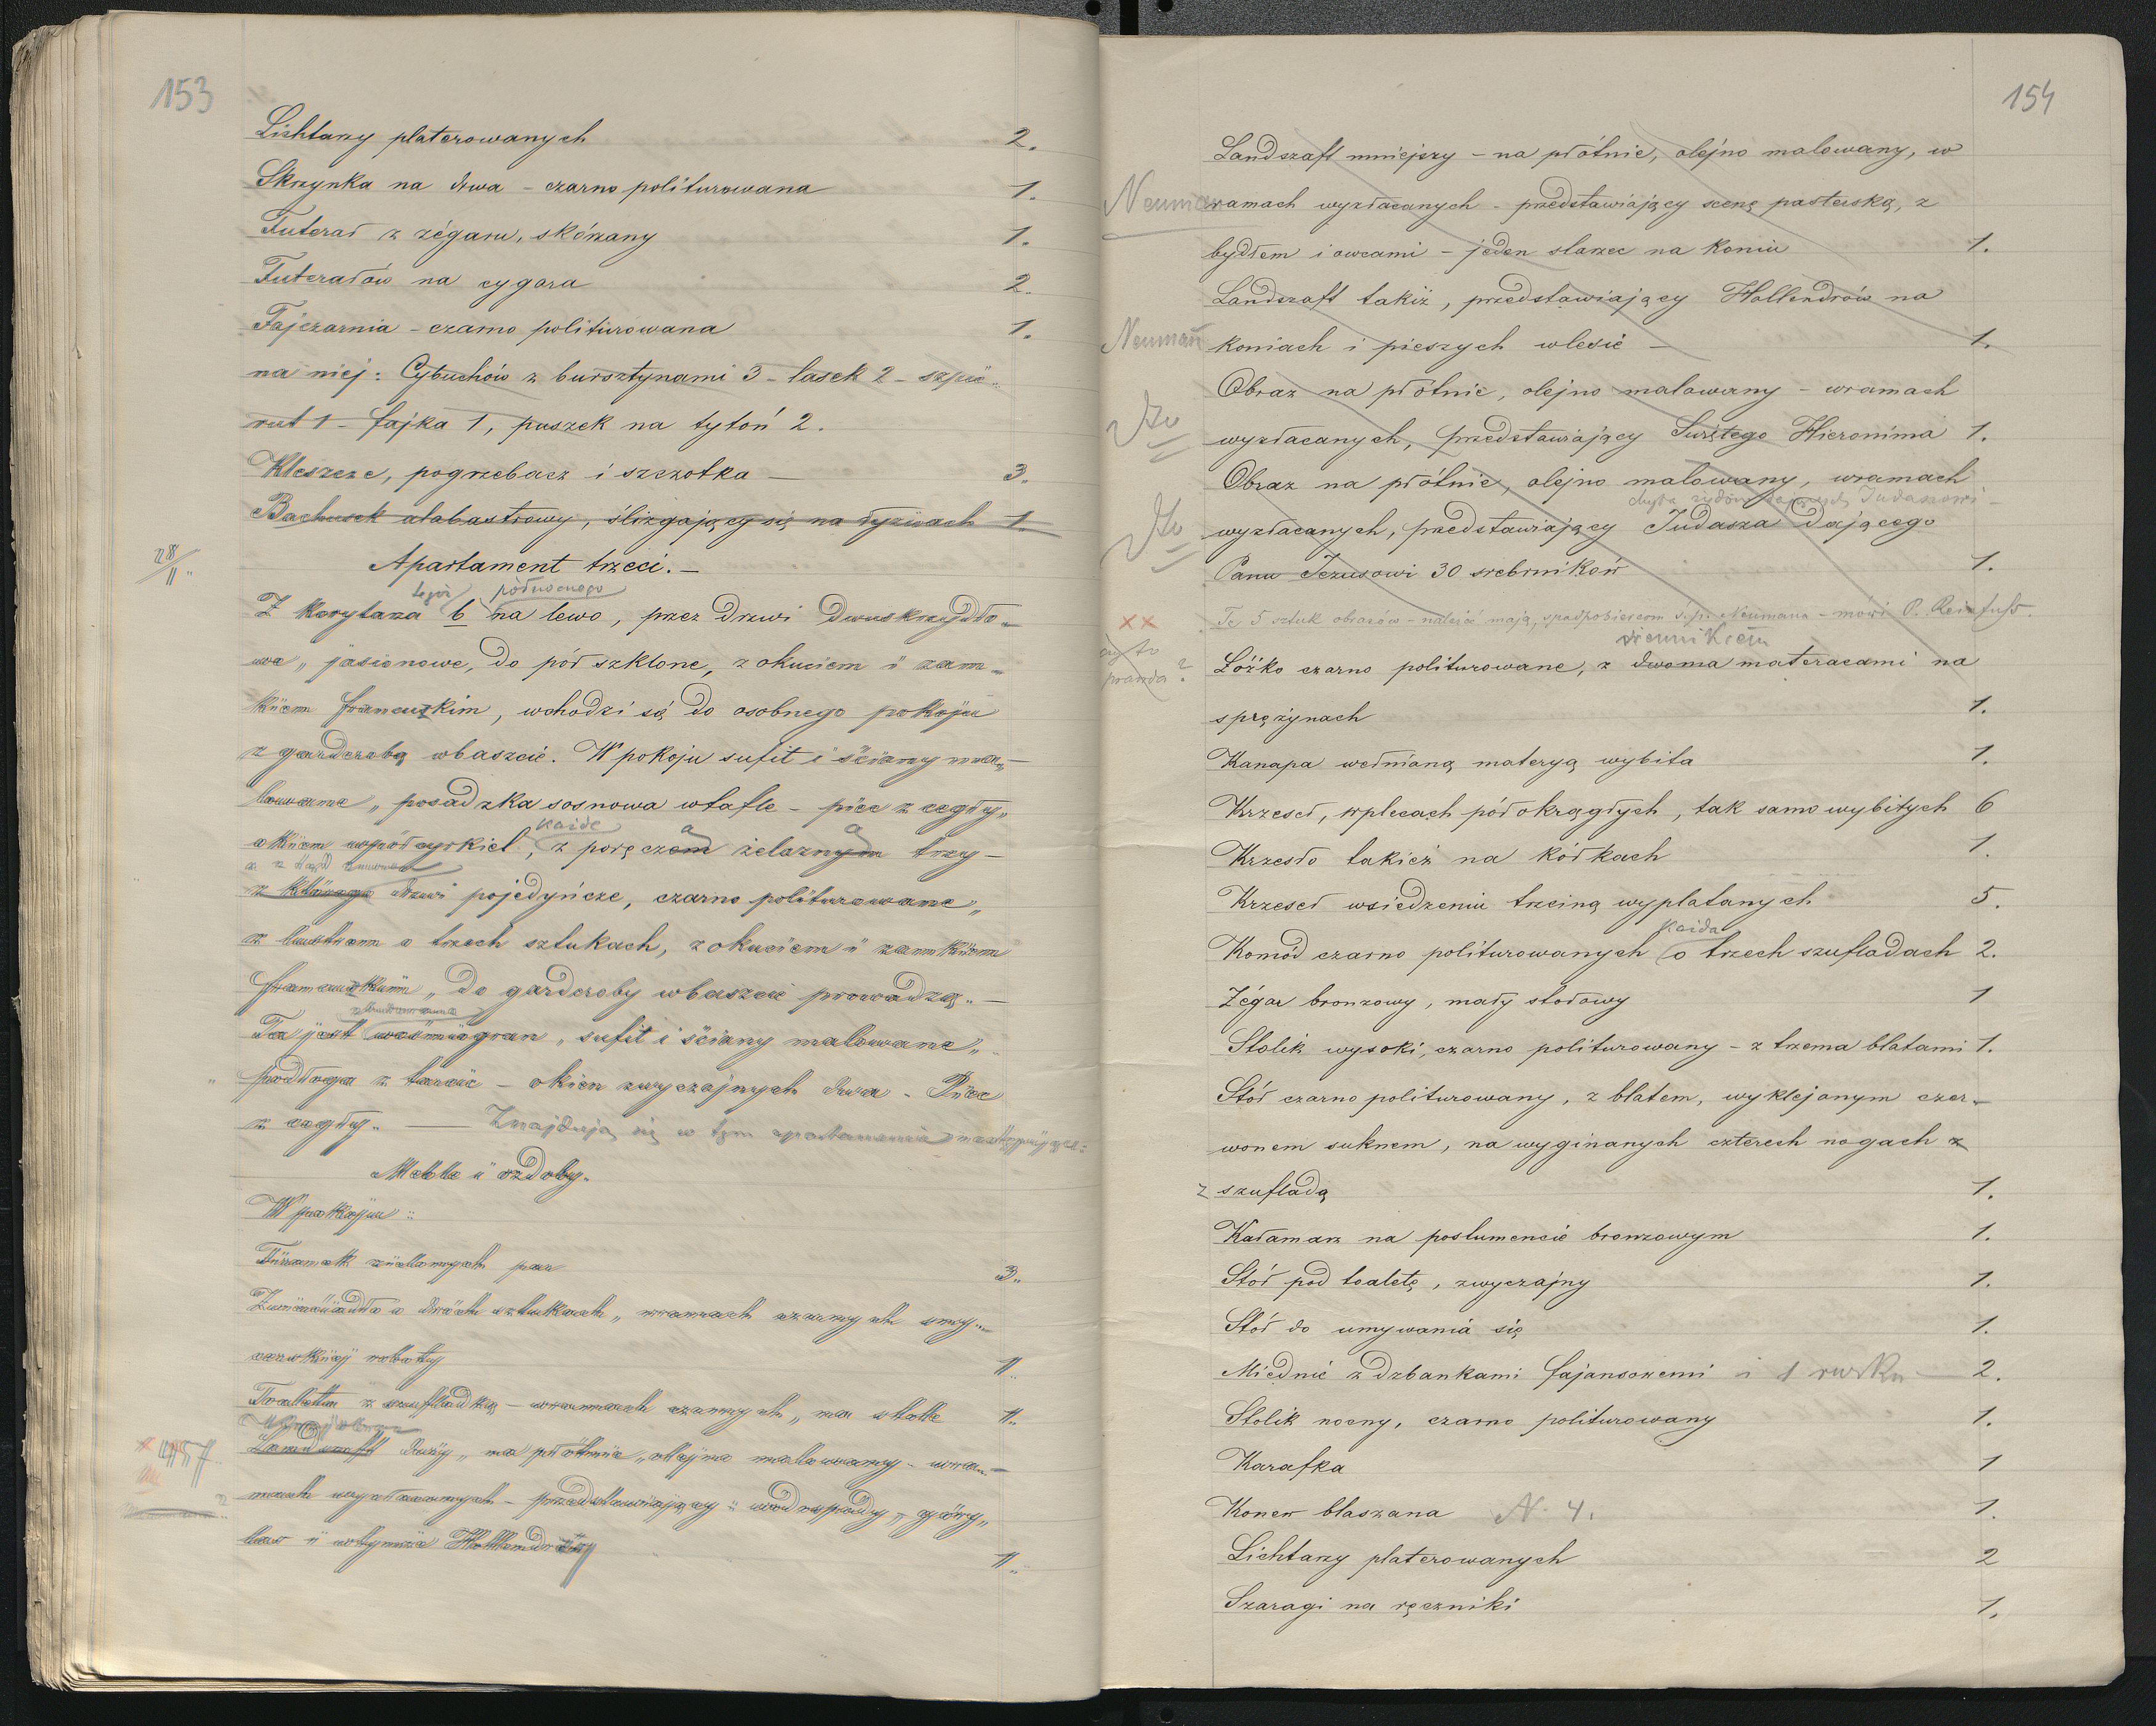 153
Lichtarzy platerowanych 2.
Skrzynka na drwa – czarno politurowana 1.
Futerał z zégaru, skórzany 1.
Futerałów na cygara 2.
Fajczarnia – czarno politurowana 1.
na niej: Cybuchów z bursztynami 3 – lasek 2 – szpic-
rut 1 – fajka 1, puszek na tytoń 2.
Kleszcze, pogrzebacz i szczotka — 3.
Bachusek alabastrowy, ślizgający się na łyżwach 1.
28/11
Apartament trzeci. —
tegoż północnego
Z korytarza b na lewo, przez drzwi dwuskrzydło-
we, jasionowe, do pół szklone, z okuciem i zam-
kiem francuzkim, wchodzi się do osobnego pokoju
z garderobą wbaszcie. W pokoju sufit i ściany ma-
lowane, posadzka sosnowa wtafle – piec z cegły,
każde a a
okien wpółcyrkiel, z poręczem żelaznym trzy –
z którego drzwi pojedyńcze, czarno politurowane,
z lustrem o trzech sztukach, z okuciem i zamkiem
francuzkim, do garderoby wbaszcie prowadzą. —
Ta jest wośmiogran, sufit i ściany malowane,
podłoga z tarcic – okien zwyczajnych dwa – Piec
z cegły. — Znajdują się w tym apartamencie następujące:
Meble i ozdoby.
W pokoju:
Firanek białych par 3.
Zwierciadło o dwóch sztukach, wramach czarnych sny-
cerskiej roboty 1.
Toaleta z szufladką – wramach czarnych, na stole 1.
457
Landszaft duży, na płótnie, olejno malowany – wra-
mach wyzłacanych – przedstawiający: wodospady, góry,
las i w Hollandrzy 1.
154
Landszaft mniejszy – na płótnie, olejno malowany, w
Neuman ramach wyzłacanych – przedstawiający scenę pasterską, z
bydłem i owcami – jeden starzec na koniu 1.
Landszaft takiż, przedstawiający Hollendrów na
Neuman koniach i pieszych wlesie — 1.
Obraz na płótnie, olejno malowany – wramach
dto wyzłacanych, przedstawiający Świętego Hieronima 1.
Obraz na płótnie, olejno malowany, wramach
chyba żydów Judaszowi –
dto wyzłacanych, przedstawiający Judasza dającego
Panu Jezusowi 30 srebrników 1.
xx Te 5 sztuk obrazów – należeć mają, spadpobiercom ś.p. Neumana – mówi P. Reinfuss.
czy to prawda?
siennikiem
Łóżko czarno politurowane, z dwoma materacami na
sprężynach 1.
Kanapa wełnianą materyą wybita 1.
Krzeseł, wplecach półokrągłych, tak samo wybitych 6
Krzesło takież na kółkach 1.
Krzeseł wsiedzeniu trzciną wyplatanych 5.
każda
Komód czarno politurowanych o trzech szufladach 2.
Zégar bronzowy, mały stołowy 1
Stolik wysoki, czarno politurowany – z trzema blatami 1.
Stół czarno politurowany, z blatem, wyklejanym czer-
wonem suknem, na wyginanych czterech nogach z
z szufladą 1.
Kałamarz na postumencie bronzowym 1.
Stół pod toaletę, zwyczajny 1.
Stół do umywania się 1.
Miednic z dzbankami fajansowemi i 1 2.
Stolik nocny, czarno politurowany 1.
Karafka 1
Konew blaszana N. 4. 1.
Lichtarzy platerowanych 2
Szaragi na ręczniki 1.